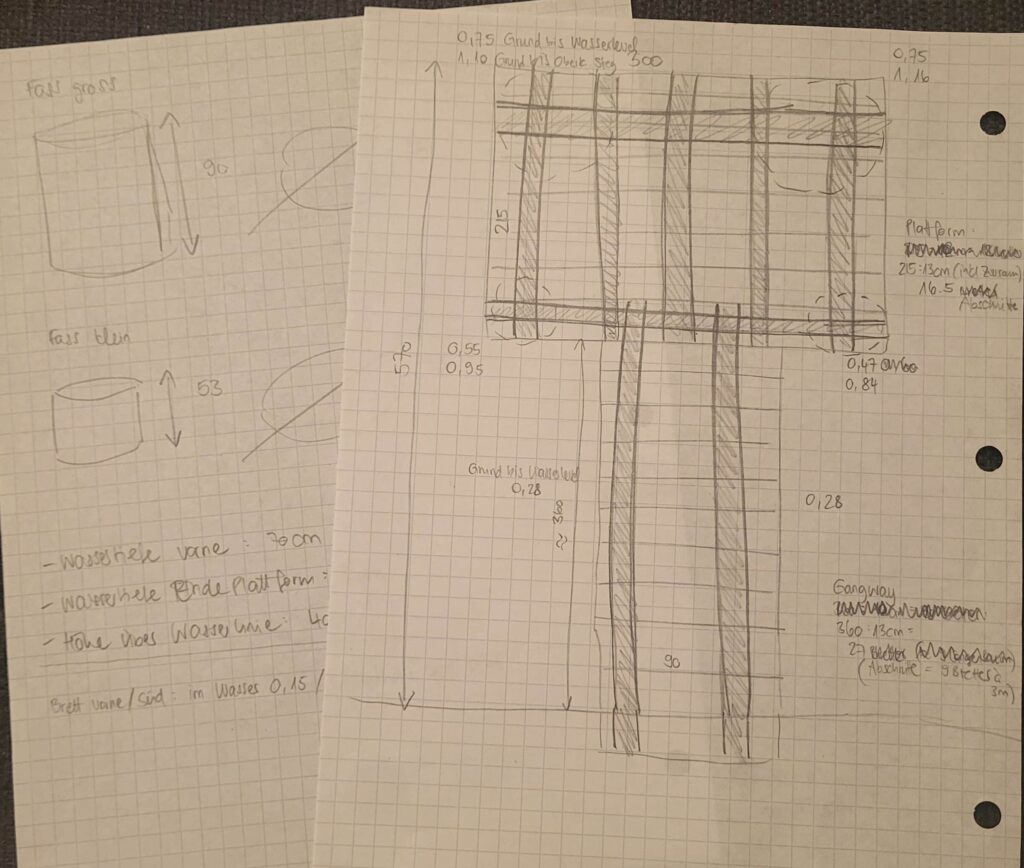 Fass gross
90
Fass klein
53
- Wassertiefe vorne : 70cm
- Wassertiefe Ende Plattform =
- Höhe übes Wasserlinie: 40
Brett vorne/Süd: im Wasses 0,15 /
0,75 Grund bis Wasserlevel
1,10 Grund bis Oberk Steg 300
0,75
1,16
215
570
Platform
215:13cm (inkl Zwraum)
16.5
Abschnitte
0,55
0,95
0,47
0,84
Grund bis Wasserlevel
0,28
≈ 360
0,28
Gangway
360:13cm=
27
(Abschnitte = 9 Bretter à
3m)
90